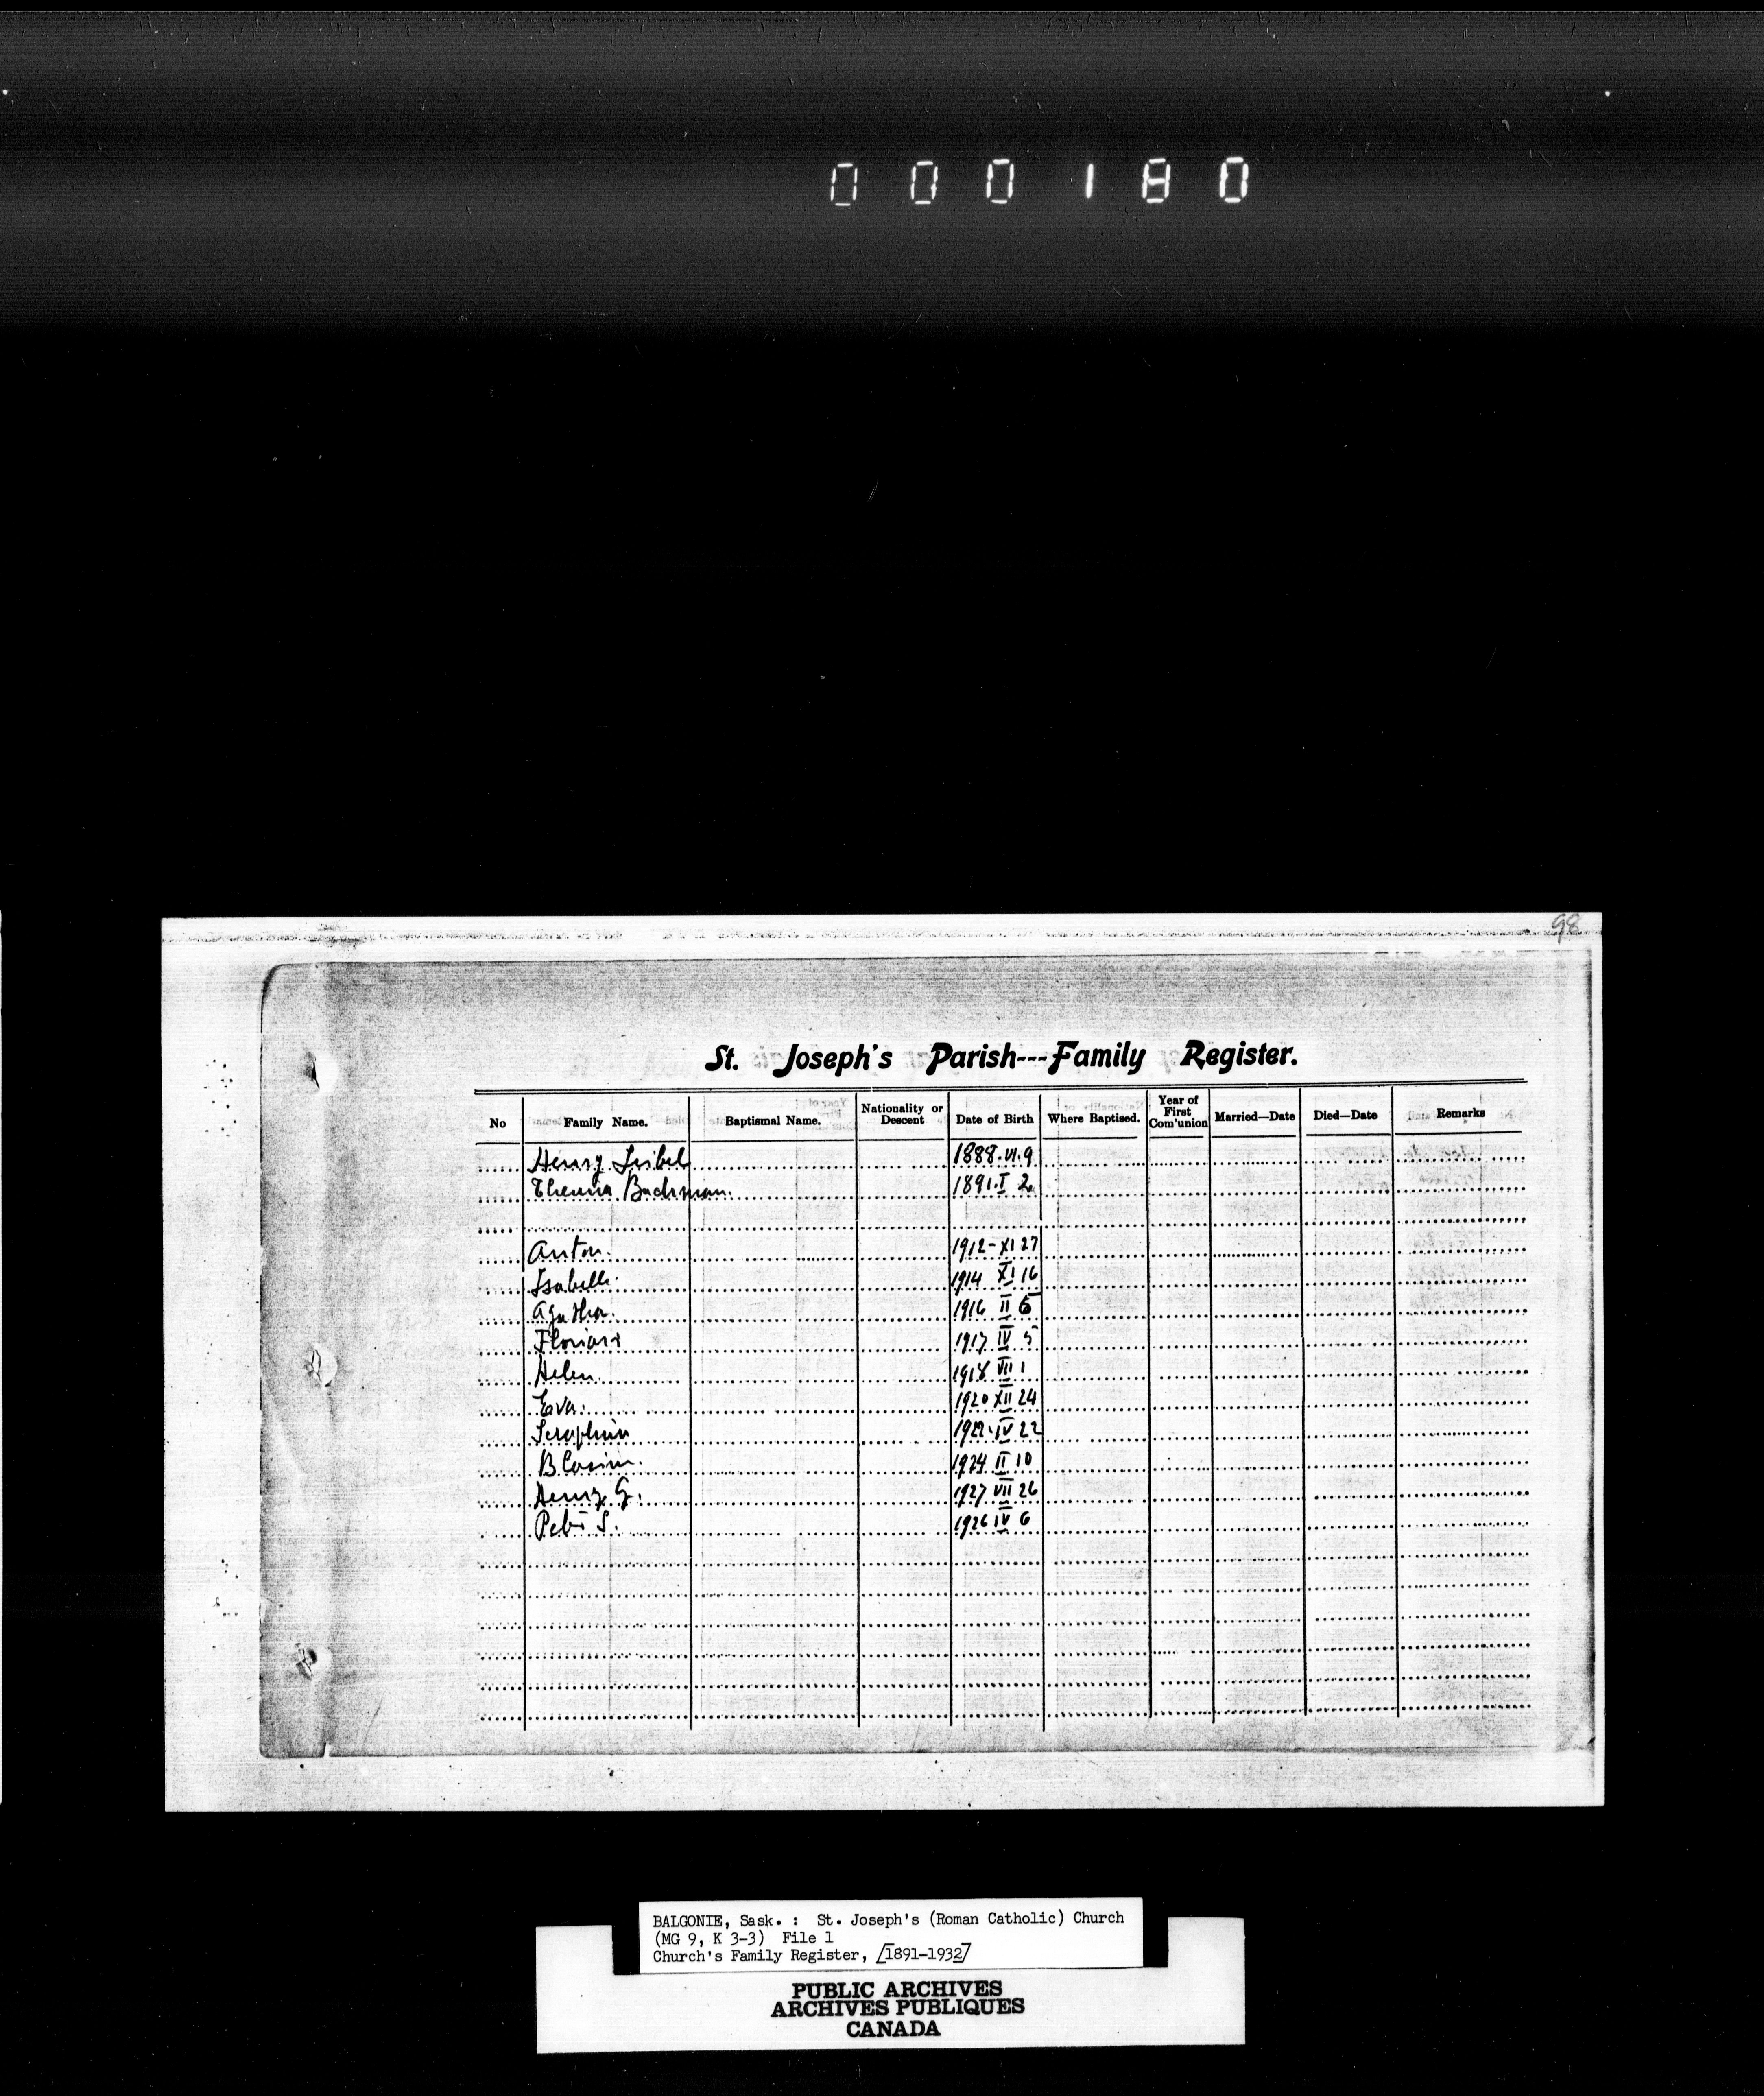 0 0 0 1 8 0
98
St. Joseph's Parish---Family Register.
No Family Name. Baptismal Name. Nationality or Descent Date of Birth Where Baptised. Year of First Com'union Married—Date Died—Date Remarks
Henry Leibel 1888.VI.9
Bachman. 1891.I 2
Anton. 1912-XI 27
Isabella. 1914 XI 16
Agatha. 1916 II 6
Florian + 1917 IV 5
Helen. 1918 VII 1
Eva. 1920 XII 24
Seraphin 1922.IV 22
1924 II 10
Henry G. 1927 VII 26
Peter S. 1926 IV 6
BALGONIE, Sask. : St. Joseph's (Roman Catholic) Church
(MG 9, K 3-3) File 1
Church's Family Register, [1891-1932]
PUBLIC ARCHIVES
ARCHIVES PUBLIQUES
CANADA